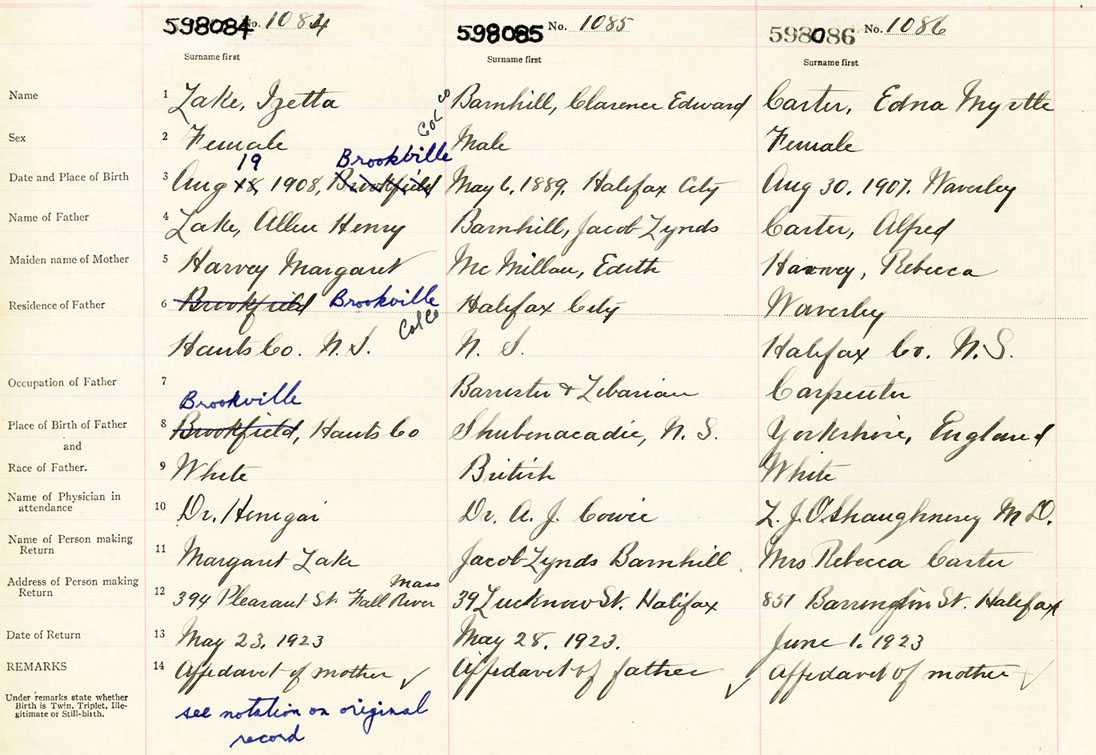 598084 No. 1084 598085 No. 1085 598086 No. 1086
Surname first Surname first Surname first
Name 1 Lake, Izetta Barnhill, Clarence Edward Carter, Edna Myrtle
Col Co
Sex 2 Female Male Female
19 Brookville
Date and Place of Birth 3 Aug 18, 1908, Brookfield May 6, 1889, Halifax City Aug 30, 1907, Waverley
Name of Father 4 Lake, Allen Henry Barnhill, Jacob Lynds Carter, Alfred
Maiden name of Mother 5 Harvey Margaret McMillan, Edith Harvey, Rebecca
Residence of Father 6 Brookfield Brookville Halifax City Waverley
Col Co
Hants Co. N.S. N. S. Halifax Co. N.S.
Occupation of Father 7 Barrister & Librarian Carpenter
Brookville
Place of Birth of Father 8 Brookfield, Hants Co Shubenacadie, N. S. Yorkshire, England
and
Race of Father. 9 White British White
Name of Physician in
attendance 10 Dr. Henigar Dr. A. J. Cowie L. J. O'Shaughnesey M D.
Name of Person making
Return 11 Margaret Lake Jacob Lynds Barnhill Mrs Rebecca Carter
Address of Person making
Return 12 394 Pleasant St. Fall River Mass 39 Lucknow St. Halifax 851 Barrington St. Halifax
Date of Return 13 May 23, 1923 May 28, 1923. June 1, 1923
REMARKS 14 Affidavit of mother ✓ Affidavit of father ✓ Affidavit of mother ✓
Under remarks state whether
Birth is Twin, Triplet, Ille-
gitimate or Still-birth.
see notation on original
record